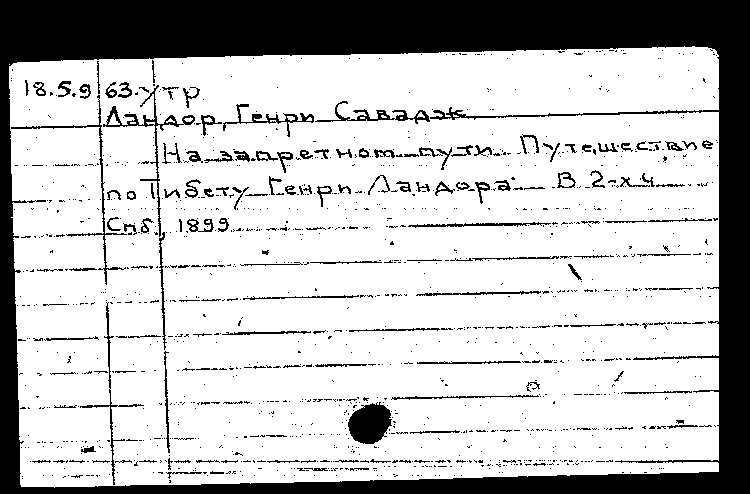 18.5.9 63.утр
Ландор, Генри Савадж
На запретном пути. Путешествие
по Тибету Генри Ландора. В 2-х ч.
Спб., 1899